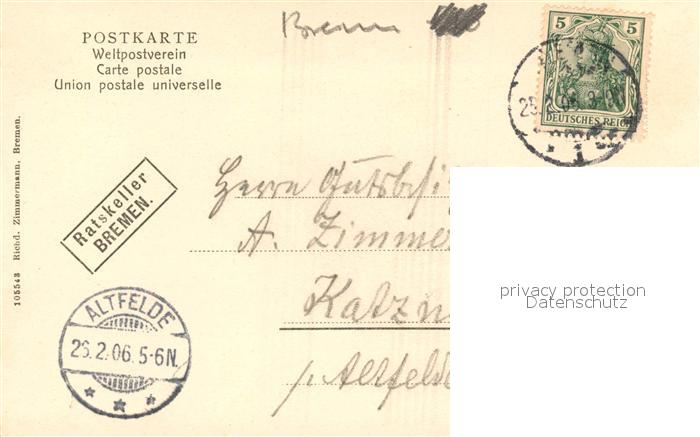 POSTKARTE
Weltpostverein
Carte postale
Union postale universelle
Bremen
5 5
DEUTSCHES REICH
Ratskeller
BREMEN.
105543 Richd. Zimmermann, Bremen.
Herrn Gutsbesi
A. Zimme
Katzn
p/Altfelde
privacy protection
Datenschutz
ALTFELDE
26.2.06.5-6N.